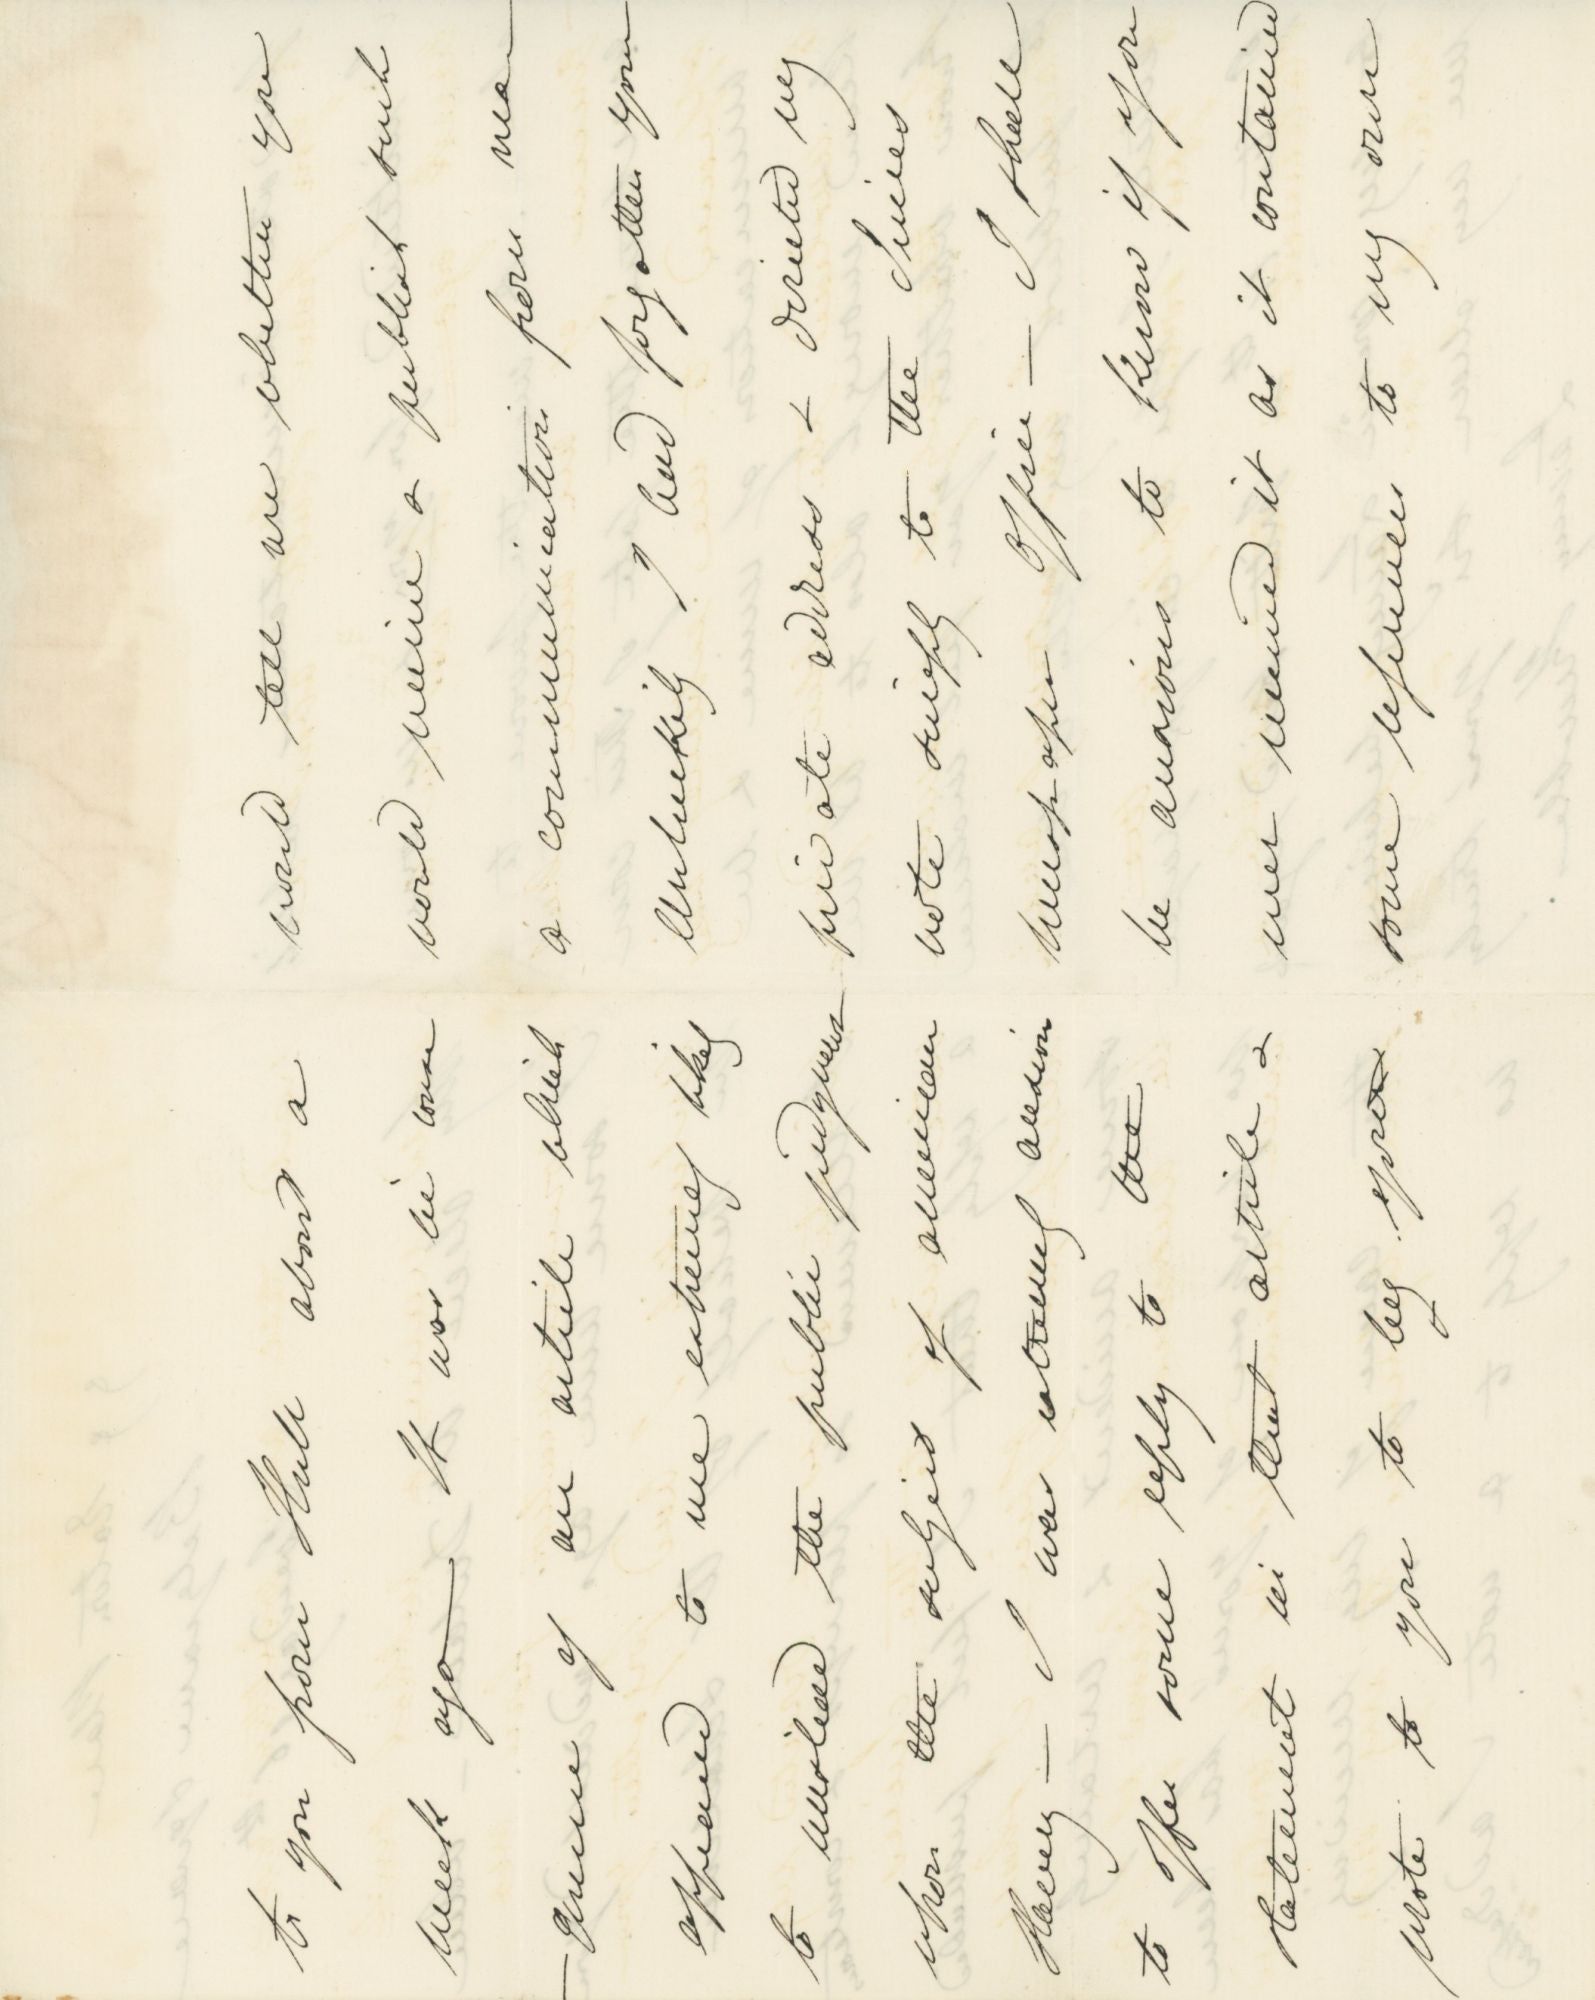 to you from Hull about a
week ago — It was in conse
– quence of an article which
appeared to me extremely likely
to mislead the public judgment
upon the subject of American
Slavery — I was extremely anxious
to offer some reply to the
statement in that article &
wrote to you to beg you
would tell me whether you
would receive & publish such
a communication from me —
Unluckily I had forgotten your
private address & directed my
note simply to the Times
Newspaper Office — I shall
be anxious to know if you
ever received it as it contained
some references to my own